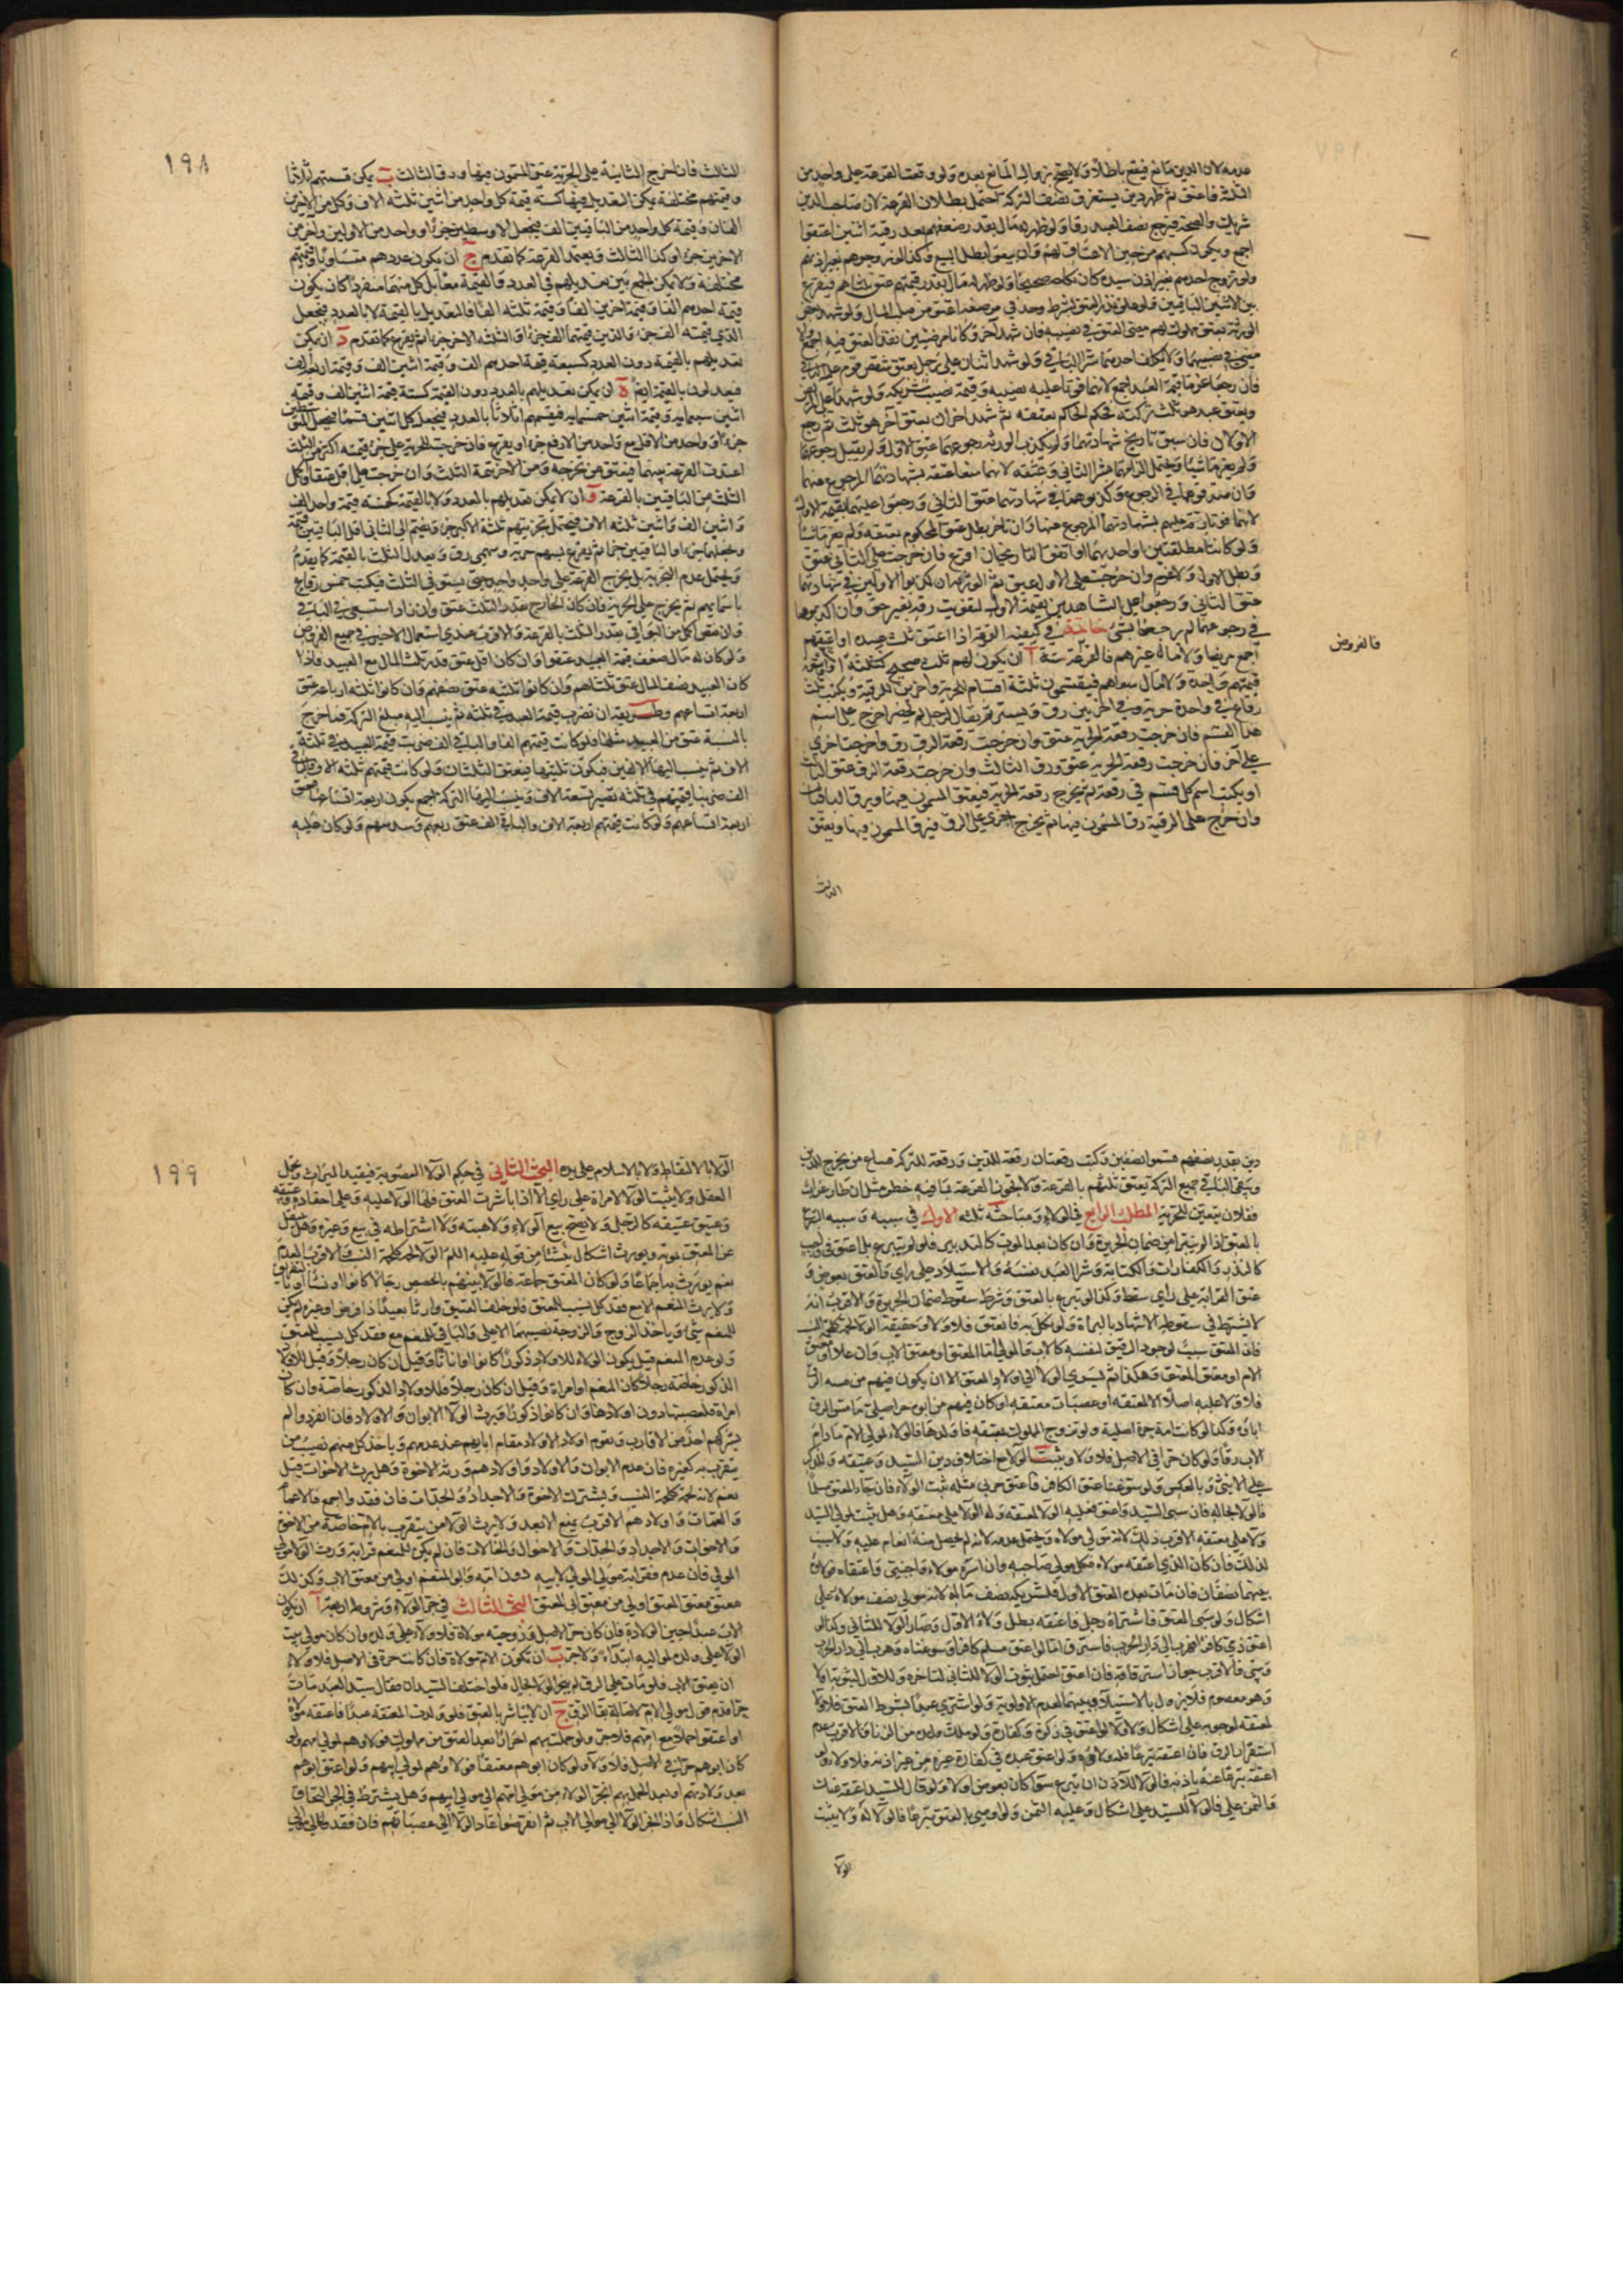 عدمه لان الدين مانع فيقع باطلا ولا يصح بزوال المانع بعده ولو وقعت القرعة على واحد من
الثلثة فاعتق ثم ظهر دين يستغرق نصف التركة احتمل بطلان القرعة لان صاحب الدين
شريك والصحة فيرجع نصف العبد رقا ولو ظهر له مال بقدر ضعفهم بعد رقية اثنين اعتقوا
اجمع ويكون كسبهم من حين الاعتاق لهم وان بيعوا بطل البيع وكذا الغير وجوهم بغير اذنهم
ولو تزوج احدهم بغير اذن سيده كان نكاحه صحيحا ولو ظهر له مال بقدر قيمتهم عتق ثلثاهم فيقرع
بين الاثنين الباقيين ولو علق نذر العتق بشرط وجد في مرضه اعتق من صلب المال ولو شهد بعض
الورثة بعتق مملوك لهم مضى العتق في نصيبه فان شهد آخر وكانا مرضيين نفذ العتق فيه اجمع والا
مضى في نصيبهما ولا يكلف احدهما شراء الباقي ولو شهد اثنان على رجل بعتق شقص قوم عليه الباقي
فان رجعا غرما قيمة العبد اجمع لانهما فوتا عليه نصيبه وقيمة نصيب شريكه ولو شهدا على المريض
وبعتق عبد هو ثلث تركته فحكم الحاكم بعتقه ثم شهد اخران بعتق آخر هو ثلث ثم رجع
الاولان فان سبق تاريخ شهادتهما ولم يكذب الورثة رجوعهما عتق الاول ولم يقبل رجوعهما
ولم يغرما شيئا ويحتمل الزامهما بشراء الثاني وعتقه لانهما منعا عتقه بشهادتهما المرجوع عنها
وان صدقوهما في الرجوع وكذبوهما في شهادتهما عتق الثاني ورجعوا عليهما بقيمة الاول
لانهما فوتا رقه عليهم بشهادتهما المرجوع عنها وان تأخر بطل عتق المحكوم بعتقه ولم يغرما شيئا
ولو كانتا مطلقتين او احديهما او اتفق التاريخان اقرع فان خرجت على الثاني عتق
وبطل الاول ولا غرم وان خرجت على الاول عتق ثم الورثة ان كذبوا الاولين في شهادتهما
عتق الثاني ورجعوا على الشاهدين بقيمة الاول لتفويت رقه بغير حق وان كذبوهما
في رجوعهما لم يرجعوا بشئ خاتمة في كيفية القرعة اذا اعتق ثلث عبيده او اعتقهم
اجمع مريضا ولا مال له غيرهم فالقرعة ستة آ ان يكون لهم ثلث صحيح كثلثة او ستة
قيمتهم واحدة ولا مال سواهم فيقسمون ثلثة اقسام للحرية واخرين للرقية ويكتب ثلث
رقاع في واحدة حرية وفي اخريين رق ويستر ثم يقال لرجل لم يحضر اخرج على اسم
هذا القسم فان خرجت رقعة الحرية عتق وان خرجت رقعة الرق رق واخرجت اخرى
على آخر فان خرجت رقعة الحرية عتق ورق الثالث وان خرجت رقعة الرق عتق الثالث
او يكتب اسم كل قسم في رقعة ثم يخرج رقعة الحرية فيعتق المسمون فيها ويرق الباقيان
وان اخرج على الرقية رق المسمون فيها ثم يخرج اخرى على الرق فيرق المسمون فيها ويعتق
الثالث
فالفروض
١٩٨
الثالث فان اخرج الثانية على الحرية عتق المسمون فيها ورق الثالث ب يمكن قسمتهم اثلاثا
وقيمتهم مختلفة يمكن التعديل فيها كستة قيمة كل واحد من اثنين ثلثة الاف وكل من الاخرين
الفان وقيمة كل واحد من الباقيين الف فيجعل الاوسطين جزءا وواحد من الاولين واخر من
الاخرين جزءا وكذا الثالث وبعتمد القرعة كما تقدم ج ان يكون عددهم متساويا وقيمتهم
مختلفة ولا يمكن الجمع بين تعديلهم في العدد والقيمة معا بل كل منهما منفردا كأن يكون
قيمة احدهم الفا وقيمة اخرين الفا وقيمة ثلثة الفا فالتعديل بالقيمة لا بالعدد فيجعل
الذي قيمته الف جزءا والذين قيمتهما الف جزءا والثلثة الاخر جزءا ثم يقرع كما تقدم د ان يمكن
تعديلهم بالقيمة دون العدد كسبعة قيمة احدهم الف وقيمة اثنين الف وقيمة اربعة الف
فيعدلون بالقيمة ايضا ه ان يمكن تعديلهم بالعدد دون القيمة كستة قيمة اثنين الف وقيمة
اثنين سبعمائة وقيمة اثنين خمسمائة فيقسمهم اثلاثا بالعدد فيجعل كل اثنين قسما فيجعل المتوسطين
جزءا وواحد من الاقل مع واحد من الارفع جزءا ويقرع فان خرجت الحرية على جزء قيمته اكثر من الثلث
اعيدت القرعة بينهما فيعتق من تخرجه ومن الاخر تتمة الثلث وان خرجت على اقل عتقا وكمل
الثلث من الباقيين بالقرعة و ان لا يمكن تعديلهم بالعدد ولا بالقيمة كخمسة قيمة واحد الف
واثنين الف واثنين ثلثة الاف فيحتمل تجزيتهم ثلثة الاكبر جزءا ويضم الى الثاني اقل الباقيين قيمة
ويجعلهما جزءا والباقيين جزءا ثم يقرع بسهم حرية وسهمي رق ويعدل الثلث بالقيمة كما تقدم
ويحتمل عدم التجزية بل يخرج القرعة على واحد واحد حتى يستوفي الثلث فيكتب خمس رقاع
باسمائهم ثم يخرج على الحرية فان كان الخارج بقدر الثلث عتق وان زاد استسعى في الباقي
وان نقص اكمل من البواقي بقدر الثلث بالقرعة والاقرب عندي استعمال الاخير في جميع الفروض
ولو كان له مال ضعف قيمة العبيد عتقوا وان كان اقل عتق قدر ثلث المال مع العبيد فاذا
كان العبيد نصف المال عتق ثلثاهم وان كانوا ثلثيه عتق نصفهم وان كانوا ثلثة ارباعه عتق
اربعة اتساعهم وطريقه ان تضرب قيمة العبيد في ثلثة ثم ينسب اليه مبلغ التركة فما خرج
بالنسبة عتق من العبيد مثلها فلو كانت قيمتهم الفا والباقي الف ضربت قيمة العبيد في ثلثة
الاف ثم ينسب اليها الالفين فيكون ثلثيها فيعتق الثلثان ولو كانت قيمتهم ثلثة الاف والباقي
الف ضربنا قيمتهم في ثلثة تصير تسعة الاف وينسب اليها التركة اجمع يكون اربعة اتساعها فيعتق
اربعة اتساعهم ولو كانت قيمتهم اربعة الاف والباقي الف عتق ربعهم وسدسهم ولو كان عليه
دين بقدر نصفهم قسموا نصفين وكتب رقعتان رقعة للدين ورقعة للتركة فيباع من يخرج للدين
ويبقى الباقي جميع التركة يعتق ثلثهم بالقرعة ولا يجوز القرعة بما فيه خطر مثل ان طار غراب
ففلان يتعين للحرية المطلب الرابع في الولاء ومباحثه ثلثة الاول في سببه وسببه التبرع
بالعتق اذا لم يتبرا من ضمان الجريرة وان كان بعد الموت كالتدبير فلو لم يتبرع بل اعتق في واجب
كالنذر والكفارات والكتابة وشراء العبد نفسه والاستيلاد على راي والعتق بعوض و
عتق القرابة على راي سقط وكذا لو تبرع بالعتق وشرط سقوط ضمان الجريرة والاقرب انه
لا يشترط في سقوطه الاشهاد بالبراءة ولو نكل به فانعتق فلا ولاء وحقيقة الولاء لحمة كلحمة النسب
فان المعتق سبب لوجود الرقيق لنفسه كالاب فالمولى اما المعتق او معتق الاب وان علا او معتق
الام او معتق المعتق وهكذا ثم يسري الولاء الى اولاد المعتق الا ان يكون فيهم من مسه الرق
فلا ولاء عليه اصلا الا لمعتقه او عصبات معتقه او كان فيهم من ابوه حر اصلي ما مس الرق
اباؤه وكذا لو كانت امه حرة اصلية ولو تزوج المملوك بمعتقة فاولدها فالولاء لمولى الام مادام
الاب رقا ولو كان حرا في الاصل فلا ولاء ويثبت الولاء مع اختلاف دين السيد وعتيقه وللذكر
على الانثى وبالعكس ولو سوغنا عتق الكافر فاعتق حربي مثله ثبت الولاء فان جاء المعتق مسلما
فالولاء بحاله فان سبي السيد واعتق فعليه الولاء لمعتقه وله الولاء على معتقه وهل يثبت لمولى السيد
ولاء على معتقه الاقرب ذلك لانه مولى مولاه ويحتمل عدمه لانه لم يحصل منه انعام عليه ولا سبب
لذلك فان كان الذي اعتقه مولاه فكل مولى صاحبه وان اسره مولاه واجنبي واعتقاه فولاؤه
بينهما نصفان فان مات بعده المعتق الاول فلشريكه نصف ماله لانه مولى نصف مولاه على
اشكال ولو سبي المعتق فاشتراه رجل فاعتقه بطل ولاء الاول وصار الولاء للثاني وكذا لو
اعتق ذمي كافرا فهرب الى دار الحرب فاسترق اما لو اعتق مسلم كافرا وسوغناه وهرب الى دار الحرب
وسبي فالاقرب جواز استرقاقه فان اعتق احتمل ثبوت الولاء للثاني لتاخره وللاول لثبوته اولا
وهو معصوم فلا يزول بالاستيلاء وبينهما لعدم الاولوية ولو اشترى عبدا بشرط العتق فلا ولاء
لمعتقه لوجوبه على اشكال ولا ولاء لو اعتق في زكوة وكفارة ولو ملك ولده من الزنا فالاقرب عدم
استقرار الرق فان اعتقه تبرعا فله ولاؤه ولو اعتق عبده في كفارة غيره من غير اذنه فلا ولاء ولو
اعتقه تبرعا عنه باذنه فالولاء للاذن ان تبرع سواء كان بعوض اولا ولو قال للسيد اعتقه عنك
والثمن علي فالولاء للسيد على اشكال وعليه الثمن ولو اوصى بالعتق تبرعا فالولاء له ولا يثبت
الولاء
١٩٩
الولاء بالالتقاط ولا بالاسلام على يده البحث الثاني في حكم الولاء العصوبة فيفيد الميراث وتحمل
العقل ولا يثبت الولاء لامراة على راي الا اذا باشرت العتق فلها الولاء عليه وعلى احفاده وعتيقه
وعتيق عتيقه كالرجل ولا يصح بيع الولاء ولا هبته ولا اشتراطه في بيع وغيره وهل ينتقل
عن المعتق بموته ويورث اشكال ينشأ من قوله عليه السلم الولاء لحمة كلحمة النسب والاقرب العدم
نعم يورث به اجماعا ولو كان المعتق جماعة فالولاء بينهم بالحصص رجالا كانوا او نساء او بالتفريق
ولا يرث المنعم الا مع فقد كل نسيب للمعتق فلو خلف العتيق وارثا بعيدا ذا فرض او غيره لم يكن
للمنعم شئ وياخذ الزوج والزوجة نصيبهما الاعلى والباقي للمنعم مع فقد كل نسيب للمعتق
ولو عدم المنعم قيل يكون الولاء للاولاد ذكورا كانوا او اناثا وقيل ان كان رجلا وقيل للاولاد
الذكور خاصة رجلا كان المنعم او امراة وقيل ان كان رجلا فللاولاد الذكور خاصة وان كان
امراة فلعصبتها دون اولادها وان كانوا ذكورا ويرث الولاء الابوان والاولاد فان انفردوا لم
يشركهم احد من الاقارب وتقوم اولاد الاولاد مقام ابائهم عند عدمهم وياخذ كل منهم نصيب من
يتقرب به كغيره فان عدم الابوان والاولاد واولادهم ورثه الاخوة وهل يرث الاخوات قيل
نعم لانه لحمة كلحمة النسب ويشترك الاخوة والاجداد والجدات فان فقدوا اجمع فالاعمام
والعمات واولادهم الاقرب يمنع الابعد ولا يرث الولاء من يتقرب بالام خاصة من الاخوة
والاخوات والاجداد والجدات والاخوال والخالات فان لم يكن للمنعم قرابة ورث الولاء مولى
المولى فان عدم فقرابة مولى المولى لابيه دون امه والى المنعم اولى من معتق الاب وكذلك
معتق معتق المعتق اولى من معتق اب المعتق البحث الثالث في جر الولاء وشروطه اربعة آ ان يكون
الاب عبدا حين الولادة فان كان حر الاصل وزوجته مولاة فلا ولاء على ولده وان كان مولى ثبت
الولاء على ولده لمواليه ابتداء ولا جر ب ان تكون الام مولاة فان كانت حرة في الاصل فلا ولاء ج
ان يعتق الاب فلو مات على الرق لم ينجر الولاء بحال فلو اختلف السيدان فقال سيد العبد مات
حرا قدم قول مولى الام لاصالة بقاء الرق ج ان لا يباشر بالعتق فلو ولدت المعتقة عبدا فاعتقه مولاه
او اعتقوا حملا مع امهم فلا جر ولو حملت بهم احرارا بعد العتق من مملوك فولاؤهم لمولى امهم ولو
كان ابوهم حرا في الاصل فلا ولاء ولو كان ابوهم معتقا فولاؤهم لمولى ابيهم ولو اعتق ابوهم
بعد ولادتهم او بعد الحمل بهم انجر الولاء من مولى امهم الى مولى ابيهم وهل يشترط في الجر التحاق
النسب اشكال واذا انجر الولاء الى موالي الاب ثم انقرضوا عاد الولاء الى عصباتهم فان فقدوا فالى موالي